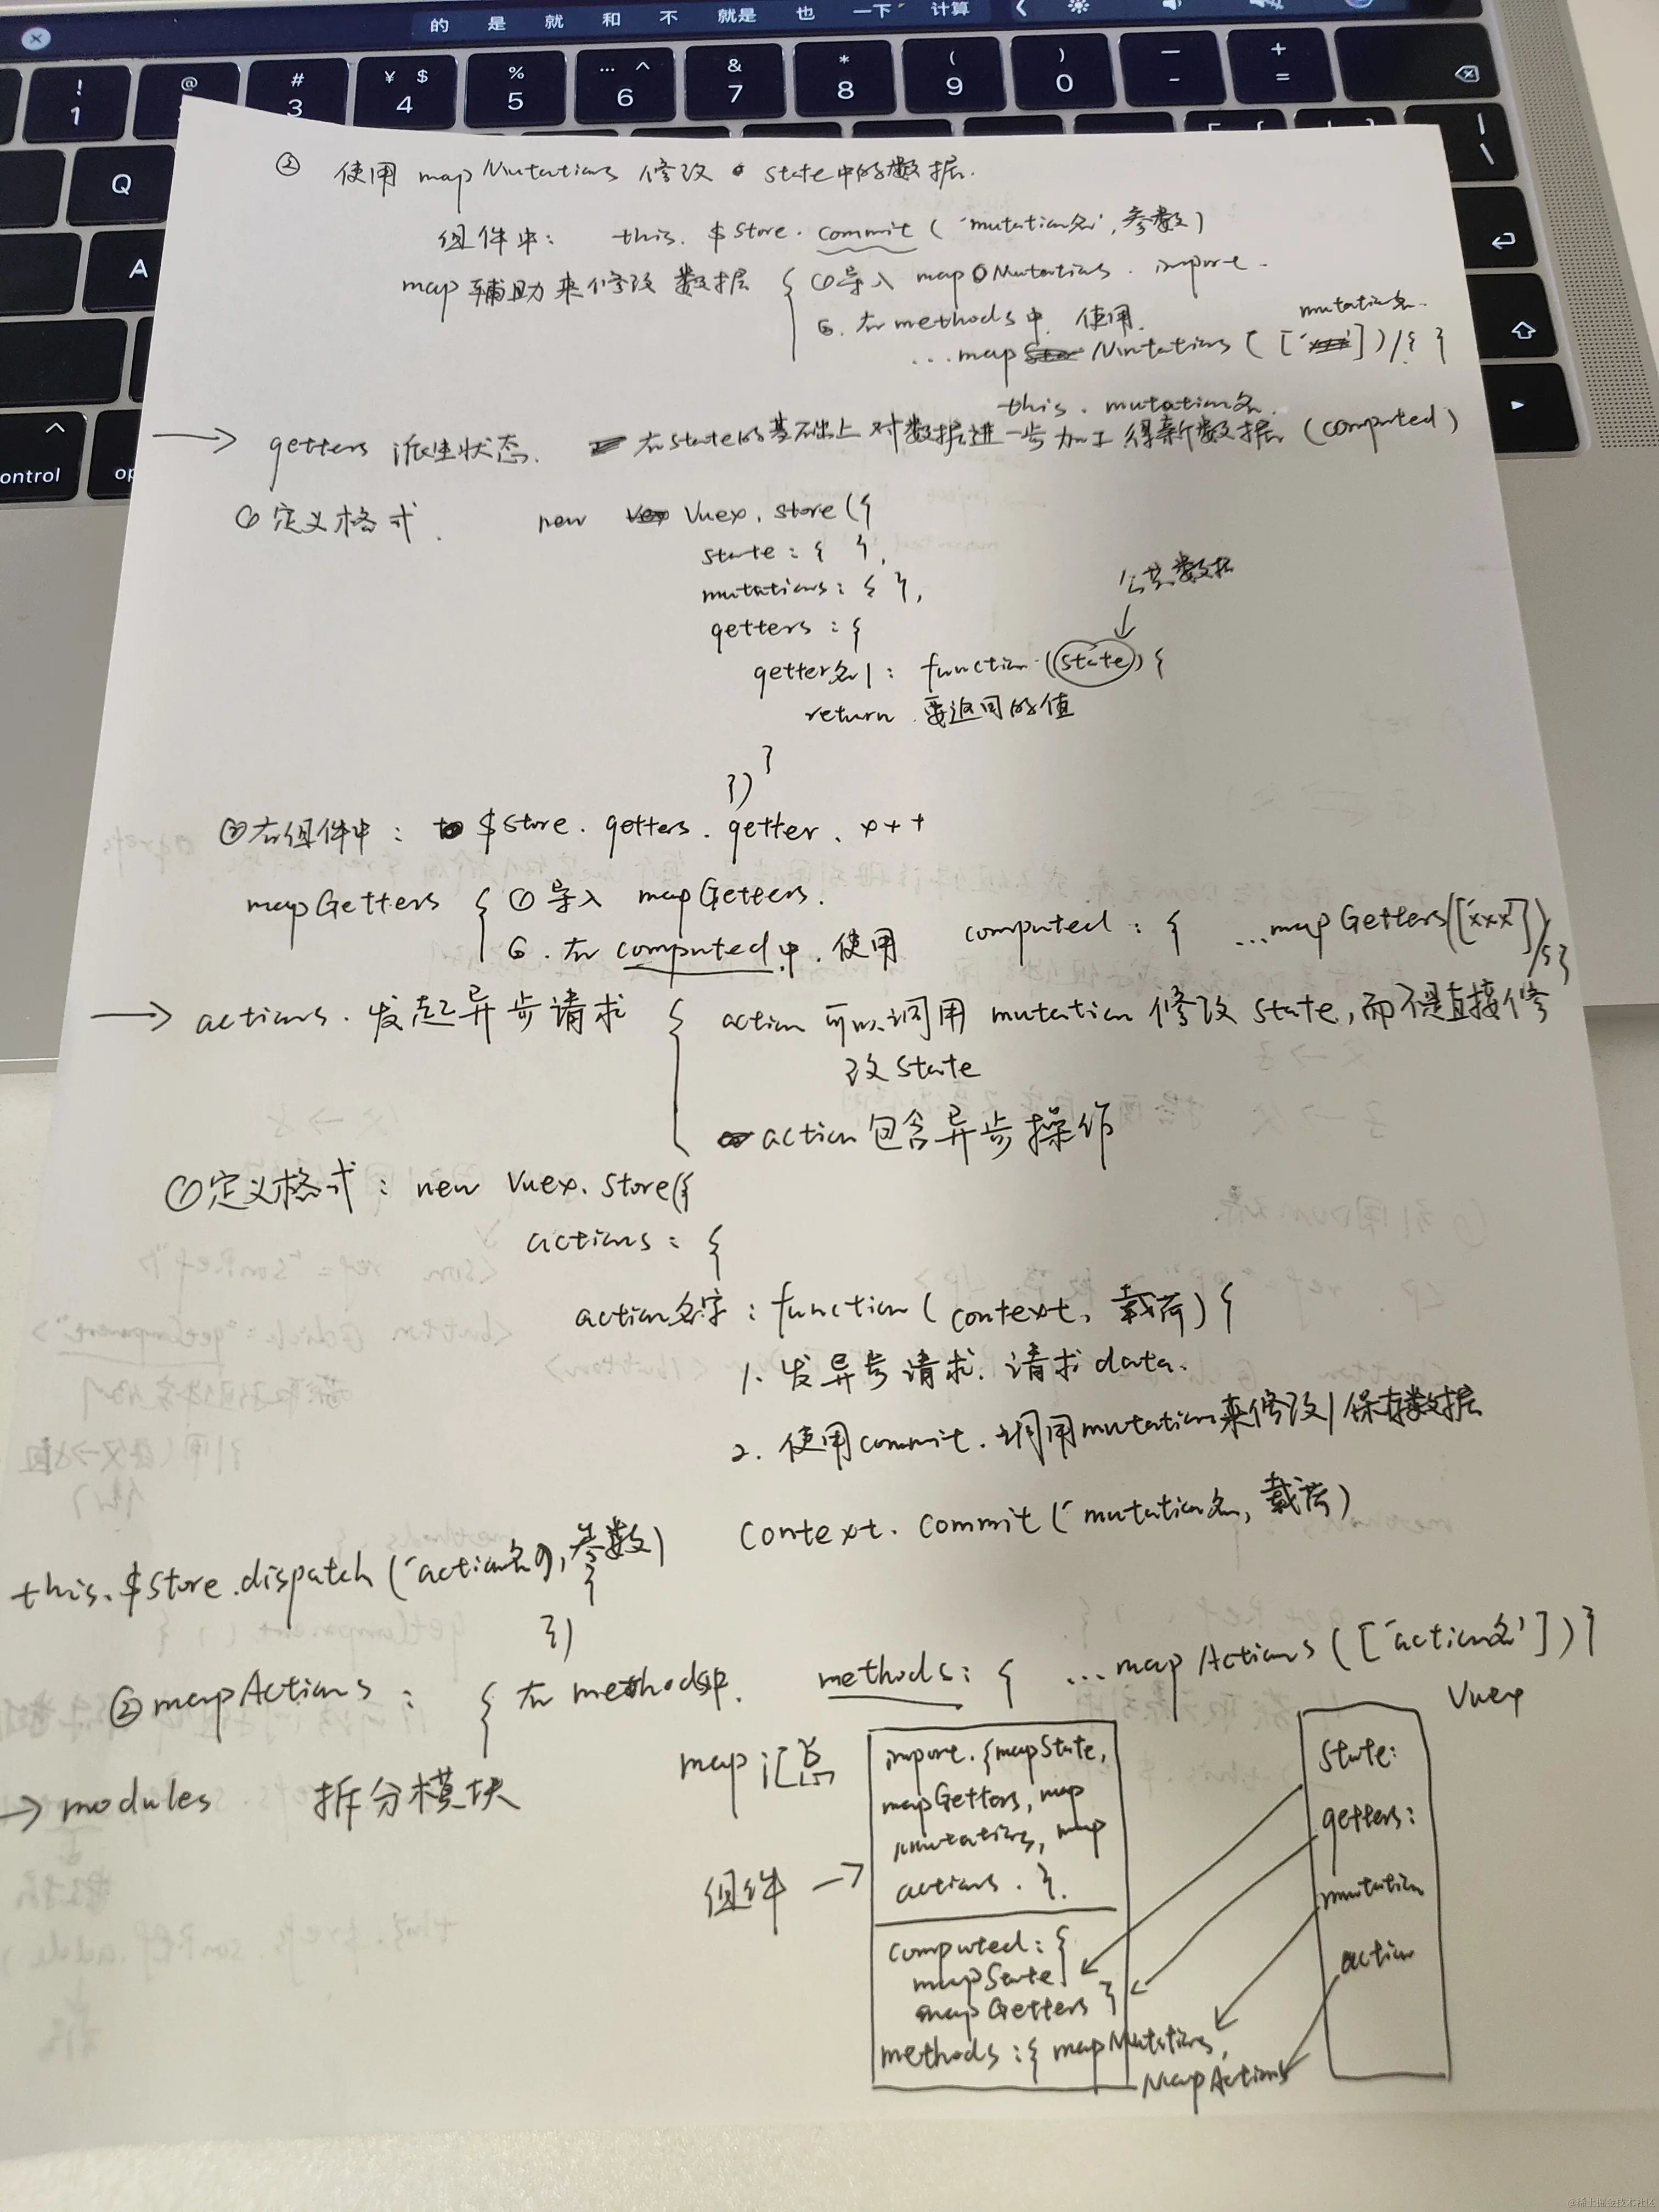 的 是 就 和 不 就是 也 一下 计算
! 1 @ # 3 ¥ $ 4 % 5 … ^ 6 & 7 * 8 ( 9 ) 0 — - + =
Q
A
control
op
② 使用 mapMutations 修改 state中的数据.
组件中: this.$store.commit('mutation名',参数)
map辅助来修改数据 { ①导入 mapMutations. import.
②.在methods中.使用.
mutation名.
...mapMutations(['']) / { }
this.mutation名.
→ getters 派生状态. 在state的基础上对数据进一步加工得新数据 (computed)
① 定义格式. new Vuex.store({
state: { },
mutations: { },
公共数据
getters: {
getter名1: function(state) {
return 要返回的值
}
})
②在组件中: $store.getters.getter.xxx
mapGetters { ①导入 mapGetters.
②.在computed中.使用 computed: { ...mapGetters(['xxx'])/{}
→ actions.发起异步请求 { action可以调用 mutation 修改 state,而不是直接修
改state
action包含异步操作
①定义格式: new Vuex.Store({
actions: {
action名字: function(context, 载荷) {
1.发异步请求.请求data.
2.使用commit.调用mutation来修改/保存数据
context.commit('mutation名, 载荷)
this.$store.dispatch('action名',参数)
}
})
②mapActions: { 在methods中. methods: { ...mapActions(['action名'])}
→ modules 拆分模块
map汇总
import.{mapState,
mapGetters, map
mutations, map
actions.}.
组件 →
computed: {
mapState
mapGetters }
methods:{ mapMutations,
MapActions
Vuex
state:
getters:
mutation
action
@稀土掘金技术社区